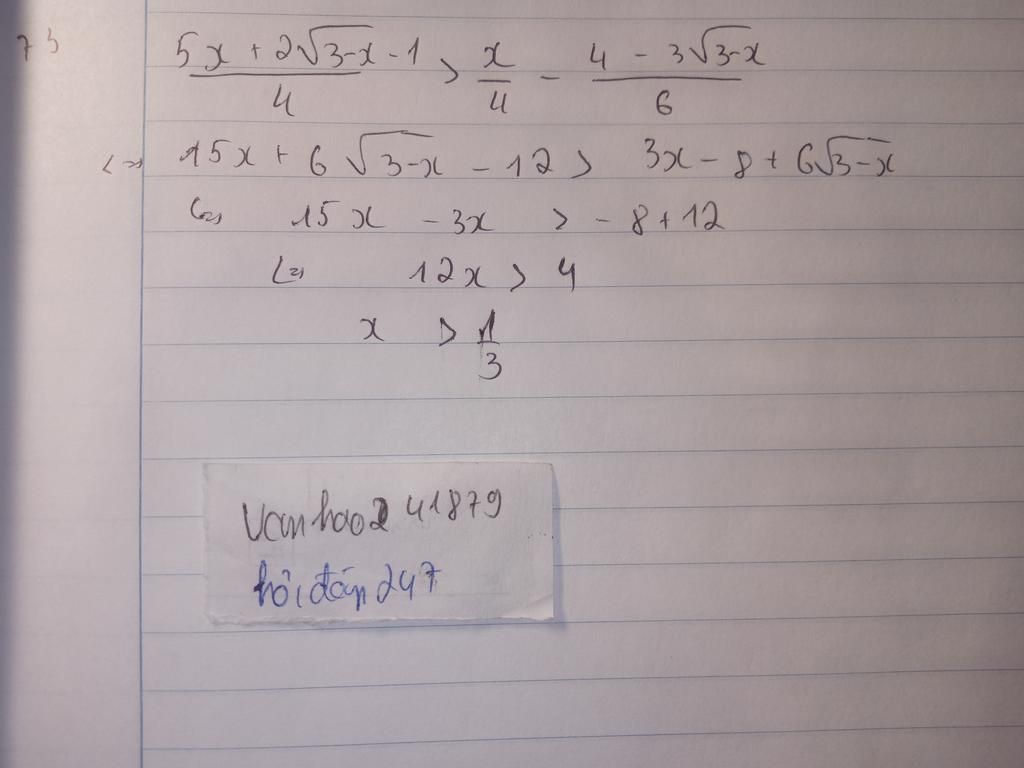 73
5x + 2√3-x - 1 / 4 > x / 4 - 4 - 3√3-x / 6
<=> 15x + 6√3-x - 12 > 3x - 8 + 6√3-x
<=> 15x - 3x > - 8 + 12
<=> 12x > 4
x > 1 / 3
Vanhao241879
hỏi đáp 247